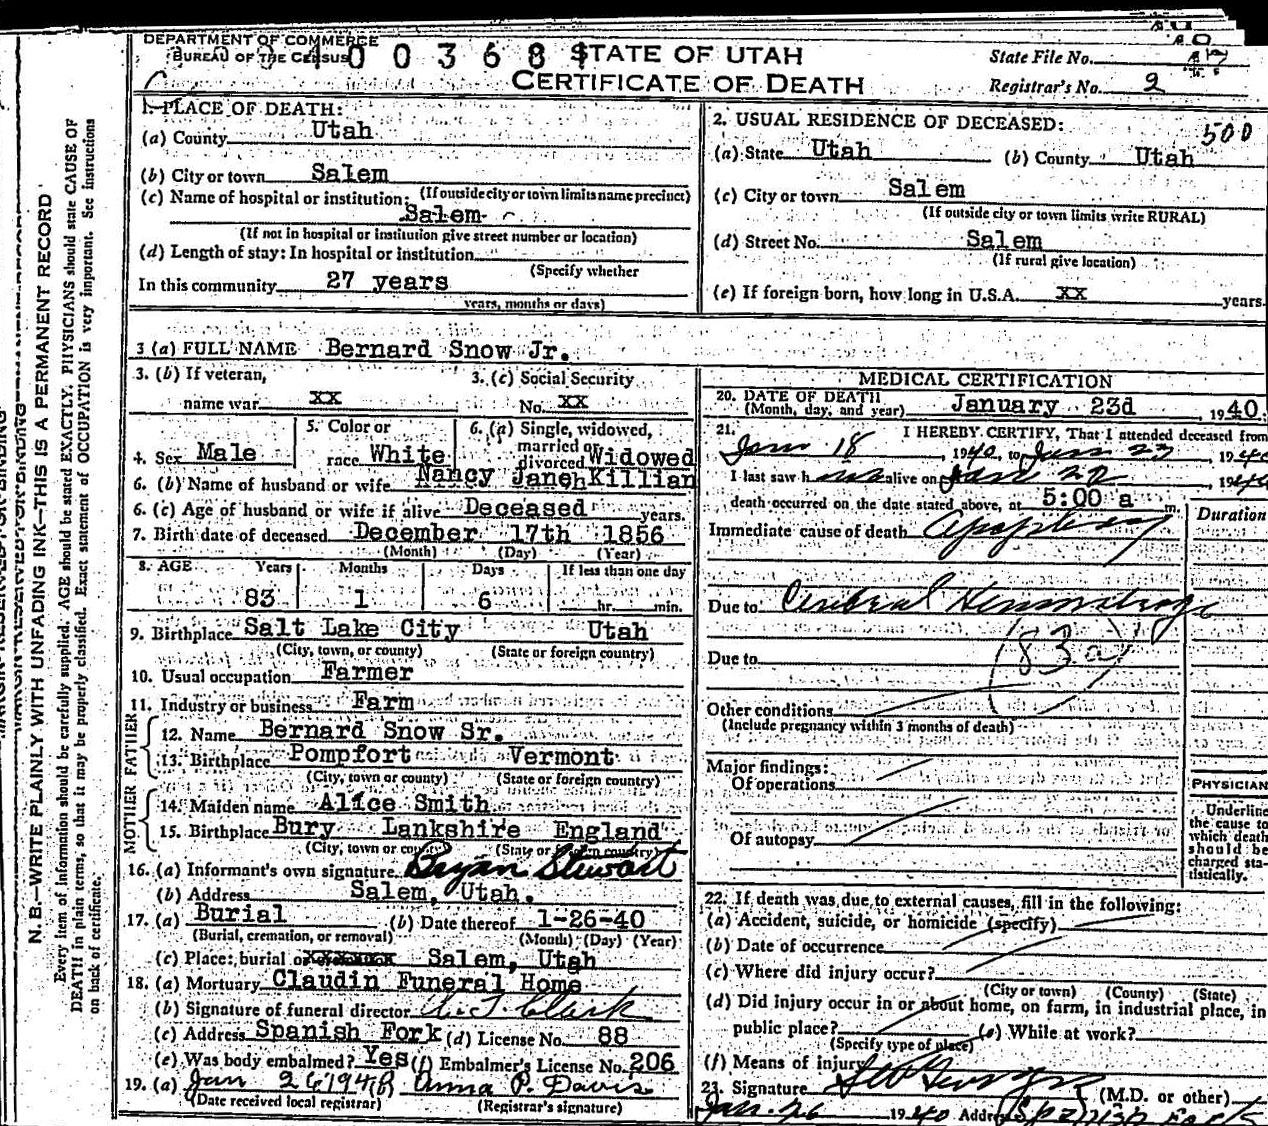 DEPARTMENT OF COMMERCE
BUREAU OF THE CENSUS
STATE OF UTAH
CERTIFICATE OF DEATH
State File No.
Registrar's No. 2
1. PLACE OF DEATH:
(a) County Utah
(b) City or town Salem
(If outside city or town limits name precinct)
(c) Name of hospital or institution:
Salem
(If not in hospital or institution give street number or location)
(d) Length of stay: In hospital or institution
(Specify whether
In this community 27 years
years, months or days)
2. USUAL RESIDENCE OF DECEASED:
500
(a) State Utah (b) County Utah
(c) City or town Salem
(If outside city or town limits write RURAL)
(d) Street No. Salem
(If rural give location)
(e) If foreign born, how long in U.S.A. xx years.
3 (a) FULL NAME Bernard Snow Jr.
3. (b) If veteran,
name war xx
3. (c) Social Security
No. xx
4. Sex Male
5. Color or
race White
6. (a) Single, widowed,
married or
divorced Widowed
6. (b) Name of husband or wife Nancy Janeh Killian
6. (c) Age of husband or wife if alive Deceased years.
7. Birth date of deceased December 17th 1856
(Month) (Day) (Year)
8. AGE Years Months Days If less than one day
83 1 6 hr. min.
9. Birthplace Salt Lake City Utah
(City, town, or county) (State or foreign country)
10. Usual occupation Farmer
11. Industry or business Farm
FATHER
12. Name Bernard Snow Sr.
13. Birthplace Pompfort Vermont
(City, town or county) (State or foreign country)
MOTHER
14. Maiden name Alice Smith
15. Birthplace Bury Lankshire England
(City, town or county) (State or foreign country)
16. (a) Informant's own signature Bryan Stewart
(b) Address Salem, Utah.
17. (a) Burial (b) Date thereof 1-26-40
(Burial, cremation, or removal) (Month) (Day) (Year)
(c) Place: burial or xxxxxxx Salem, Utah
18. (a) Mortuary Claudin Funeral Home
(b) Signature of funeral director
(c) Address Spanish Fork (d) License No. 88
(e) Was body embalmed? Yes (f) Embalmer's License No. 206
19. (a) Jan 26 194 Anna P. Davis
(Date received local registrar) (Registrar's signature)
MEDICAL CERTIFICATION
20. DATE OF DEATH
(Month, day, and year) January 23d 1940.
21. I HEREBY CERTIFY, That I attended deceased from
Jan 18, 1940, to Jan 23 1940
I last saw h alive on Jan 22, 1940
death occurred on the date stated above, at 5:00 a m.
Duration
Immediate cause of death Apoplexy
Due to Cerebral Hemorrhage
Due to
(83a)
Other conditions
(Include pregnancy within 3 months of death)
Major findings:
Of operations
Of autopsy
PHYSICIAN
Underline
the cause to
which death
should be
charged sta-
tistically.
22. If death was due to external causes, fill in the following:
(a) Accident, suicide, or homicide (specify)
(b) Date of occurrence
(c) Where did injury occur?
(City or town) (County) (State)
(d) Did injury occur in or about home, on farm, in industrial place, in
public place? (e) While at work?
(Specify type of place)
(f) Means of injury
23. Signature (M.D. or other)
Jan. 26 1940 Address
N. B.—WRITE PLAINLY WITH UNFADING INK—THIS IS A PERMANENT RECORD
Every item of information should be carefully supplied. AGE should be stated EXACTLY. PHYSICIANS should state CAUSE OF
DEATH in plain terms, so that it may be properly classified. Exact statement of OCCUPATION is very important. See instructions
on back of certificate.